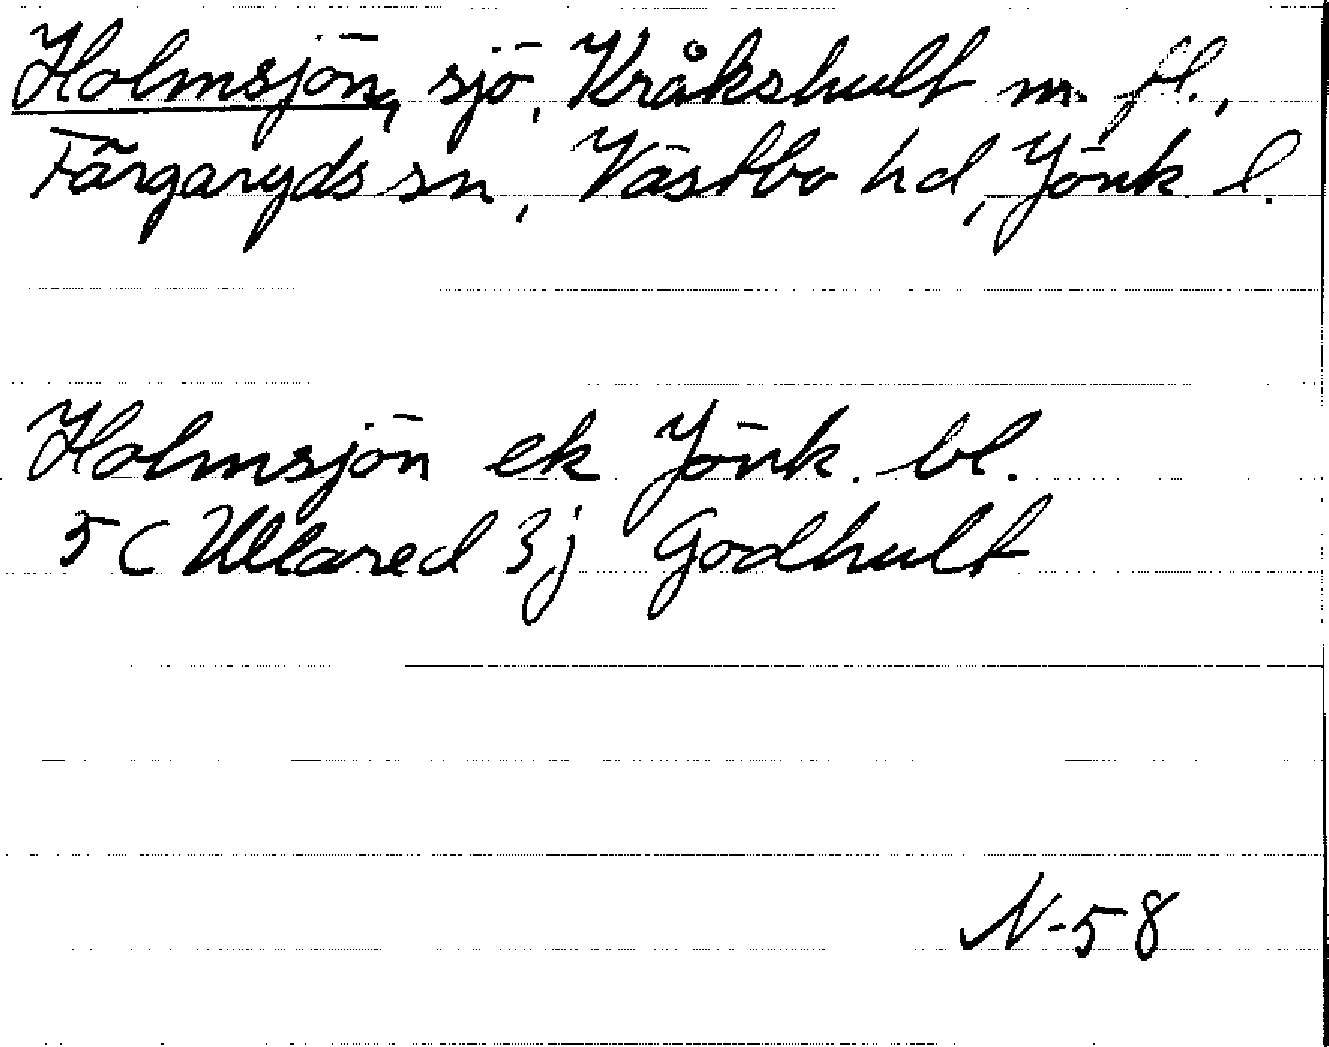 Holmsjön, sjö, Kråkshult m. fl.,
Färgaryds sn, Västbo hd, Jönk. l.
Holmsjön ek Jönk. bl.
5C Ullared 3j Godhult
N-58